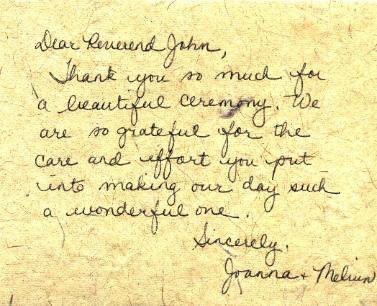 Dear Reverend John,
Thank you so much for
a beautiful ceremony. We
are so grateful for the
care and effort you put
into making our day such
a wonderful one.
Sincerely,
Joanna + Melvin